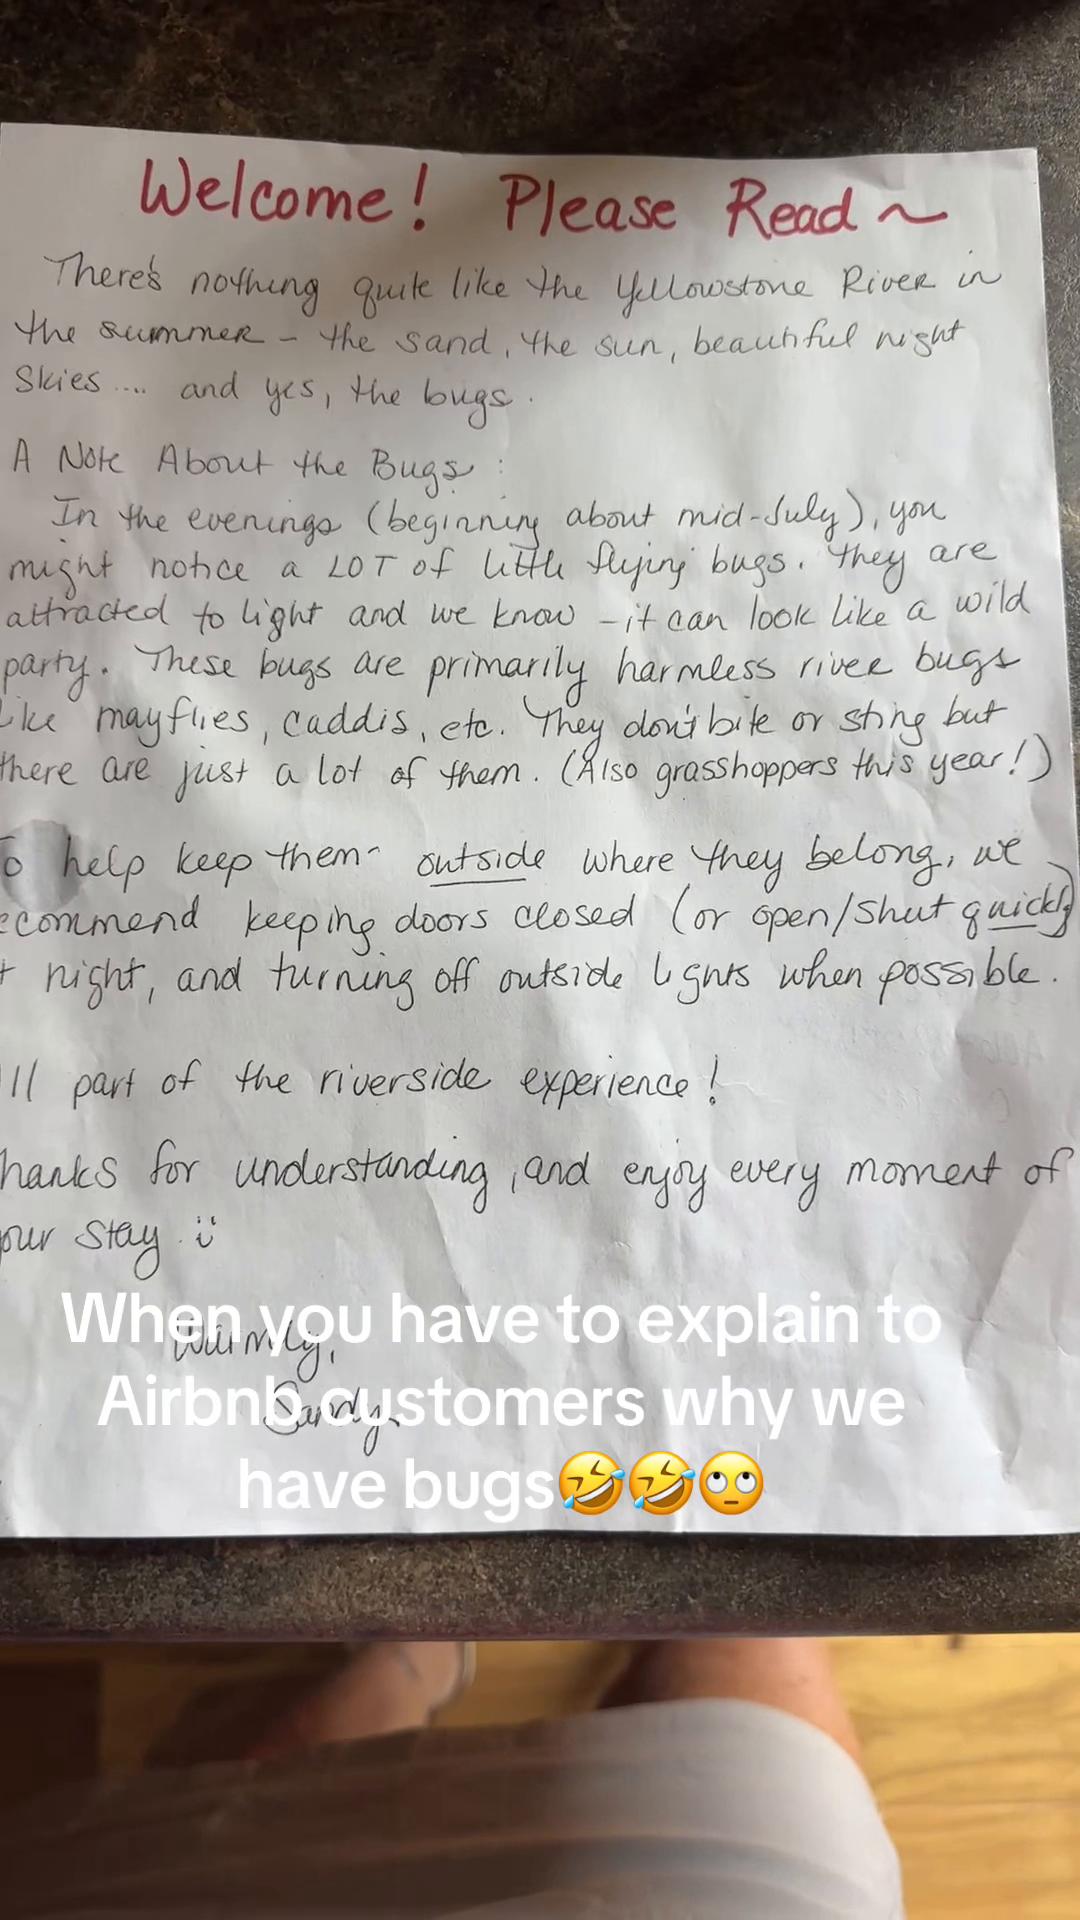 Welcome! Please Read ~
There's nothing quite like the Yellowstone River in
the summer - the sand, the sun, beautiful night
skies .... and yes, the bugs.
A Note About the Bugs :
In the evenings (beginning about mid-July), you
might notice a LOT of little flying bugs. They are
attracted to light and we know - it can look like a wild
party. These bugs are primarily harmless river bugs
like mayflies, caddis, etc. They don't bite or sting but
there are just a lot of them. (Also grasshoppers this year!)
To help keep them outside where they belong, we
ecommend keeping doors closed (or open/shut quickly)
t night, and turning off outside lights when possible.
ll part of the riverside experience!
hanks for understanding, and enjoy every moment of
our stay :)
Warmly,
Sandy
When you have to explain to
Airbnb customers why we
have bugs🤣🤣🙄